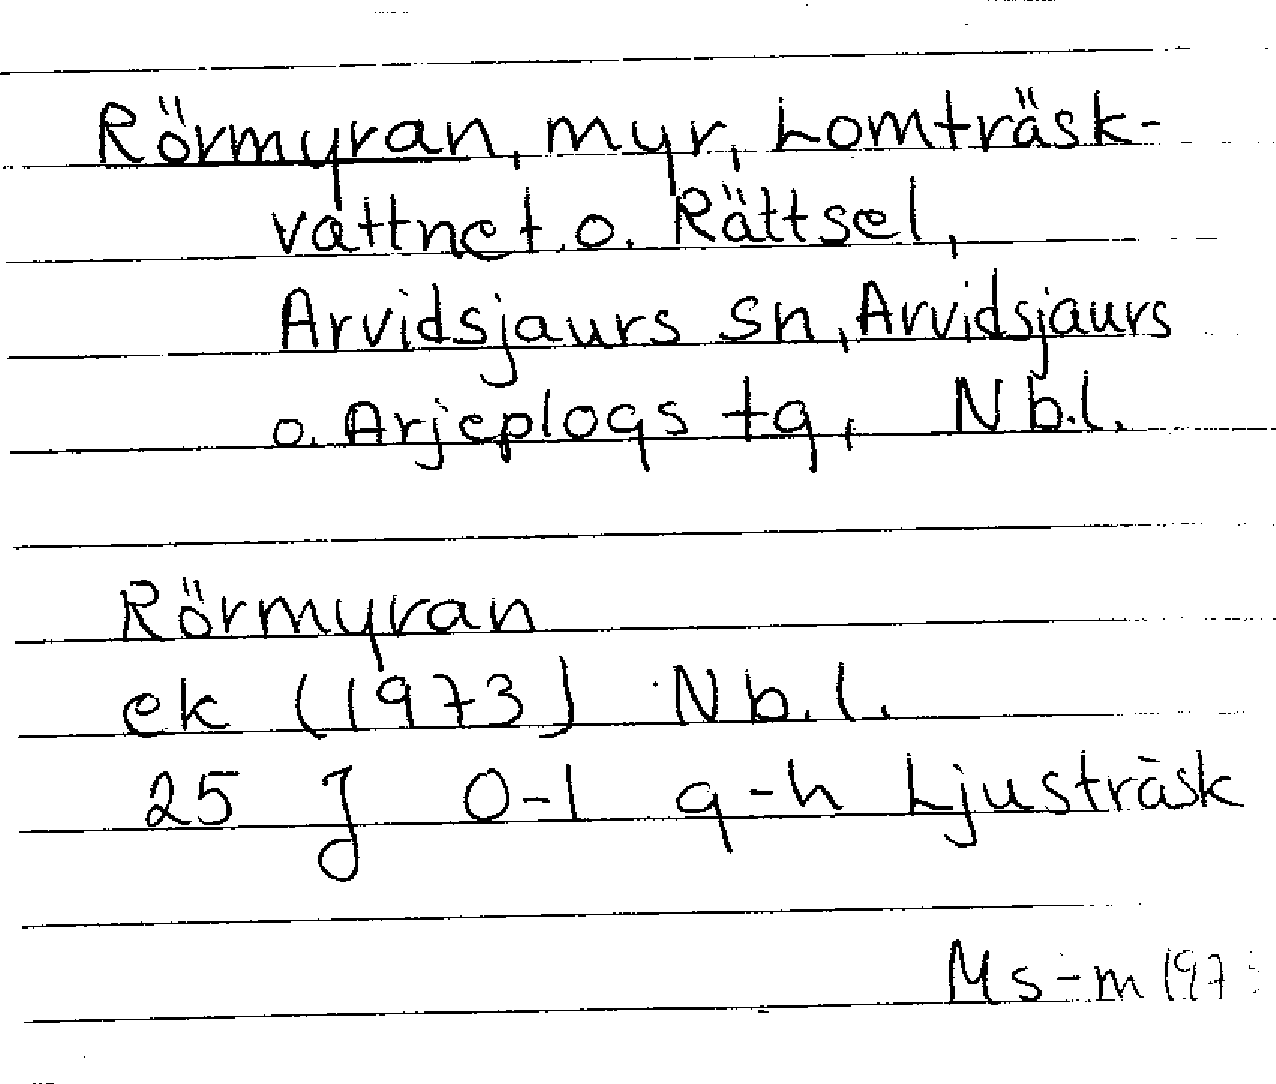 Rörmyran, myr, Lomträsk-
vattnet o. Rättsel,
Arvidsjaurs sn, Arvidsjaurs
o. Arjeplogs tg, Nb.l.
Rörmyran
ek (1973) Nb.l.
25 J 0-1 g-h Ljusträsk
Ms-m